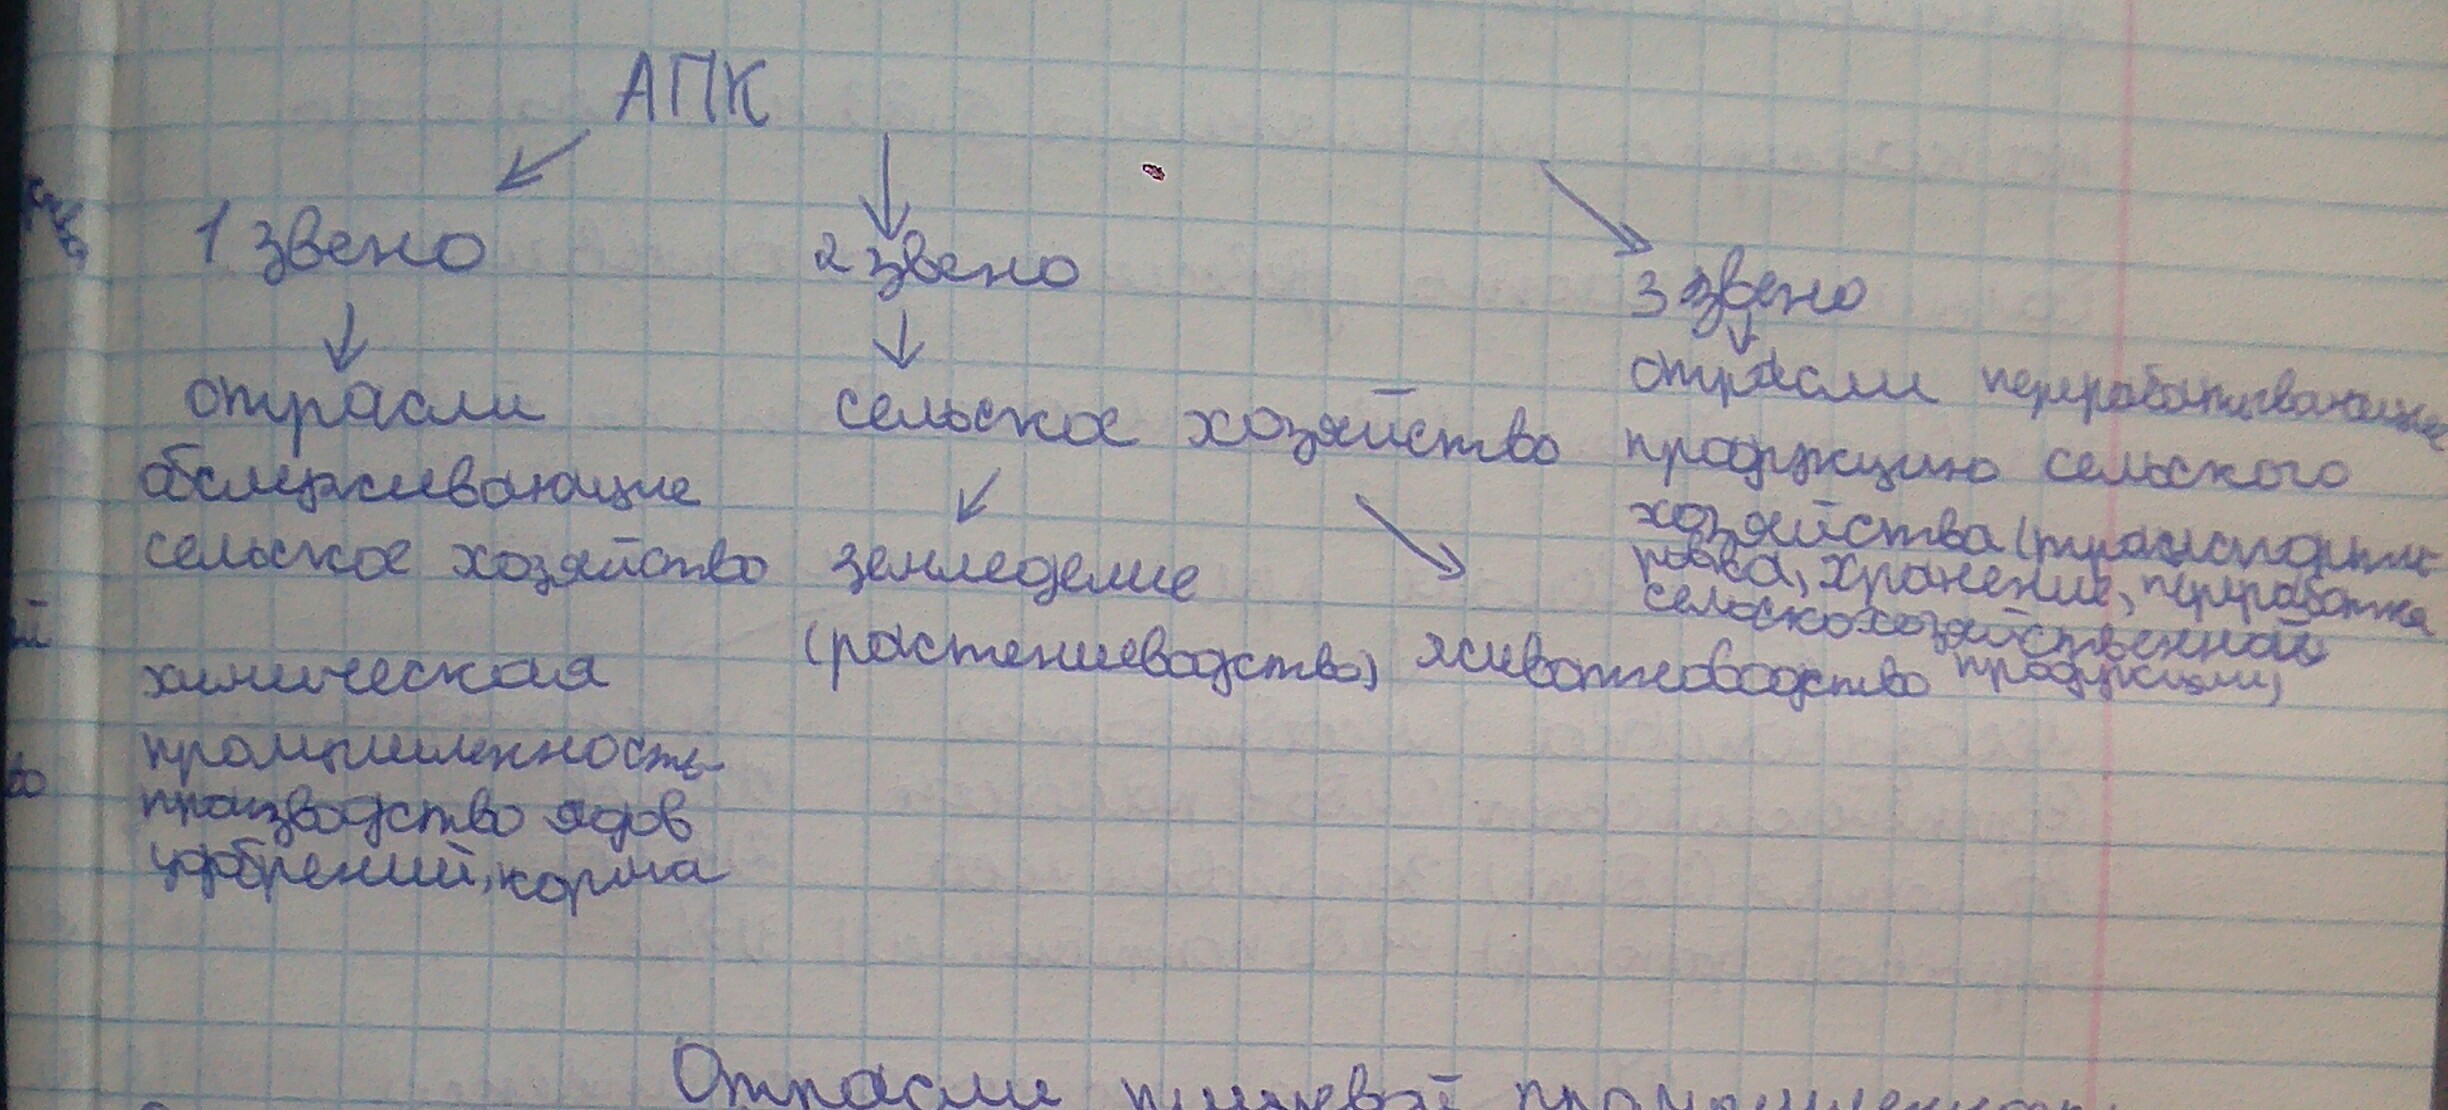 АПК
1 звено
2 звено
3 звено
отрасли
обслуживающие
сельское хозяйство
химическая
промышленность-
производство ядов
удобрений, корма
сельское хозяйство
земледелие
(растениеводство)
животноводство
отрасли перерабатывающие
продукцию сельского
хозяйства (транспорти
ровка, хранение, переработка
сельскохозяйственной
продукции)
Отрасли пищевой промышленнос